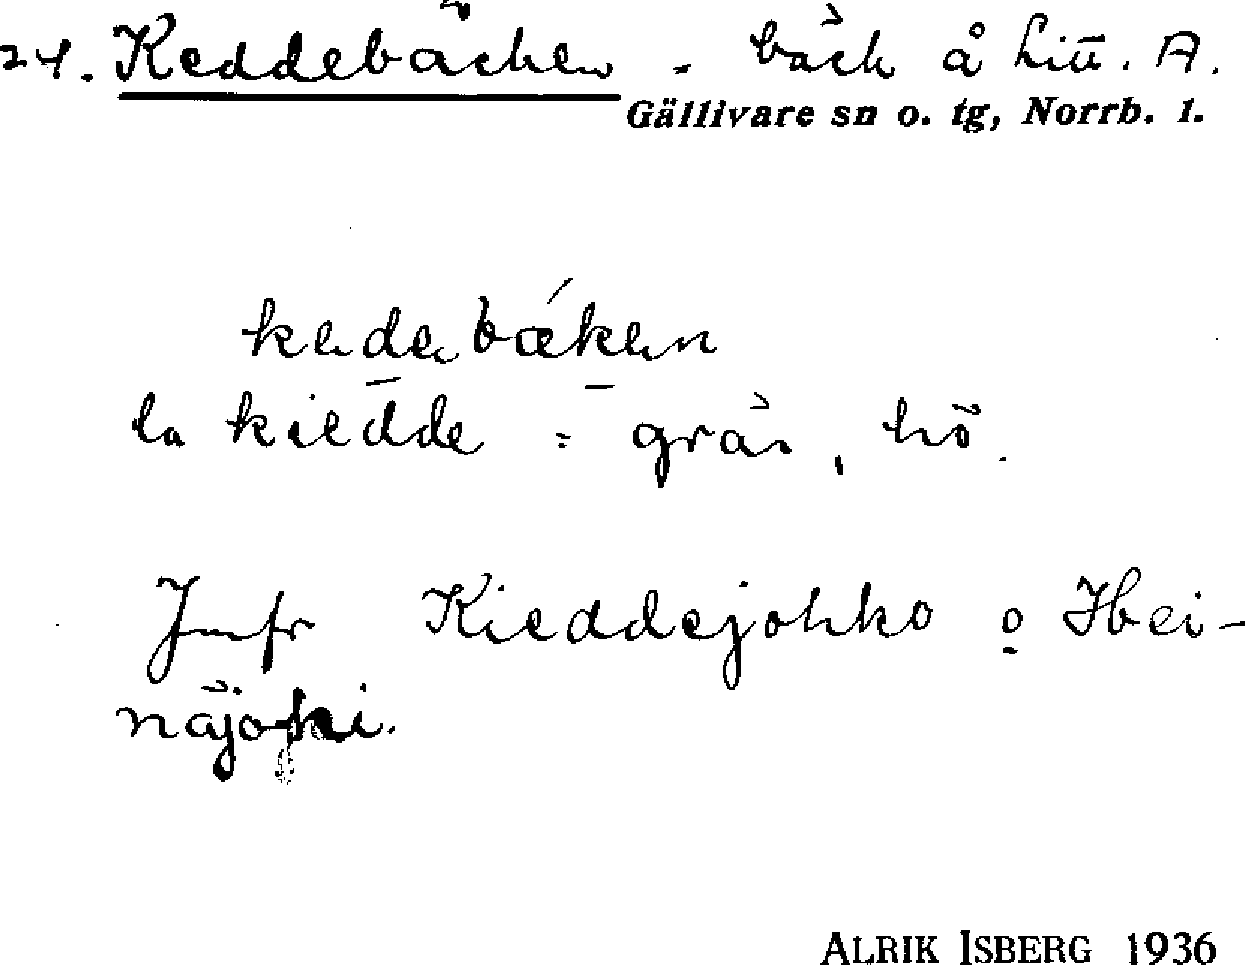 24. Keddebäcken - bäck å Litt. A.
Gällivare sn o. tg, Norrb. 1.
kedebæken
la kiedde = gräs, hö.
Jmfr Kieddejohko o Hei-
näjoki.
ALRIK ISBERG 1936